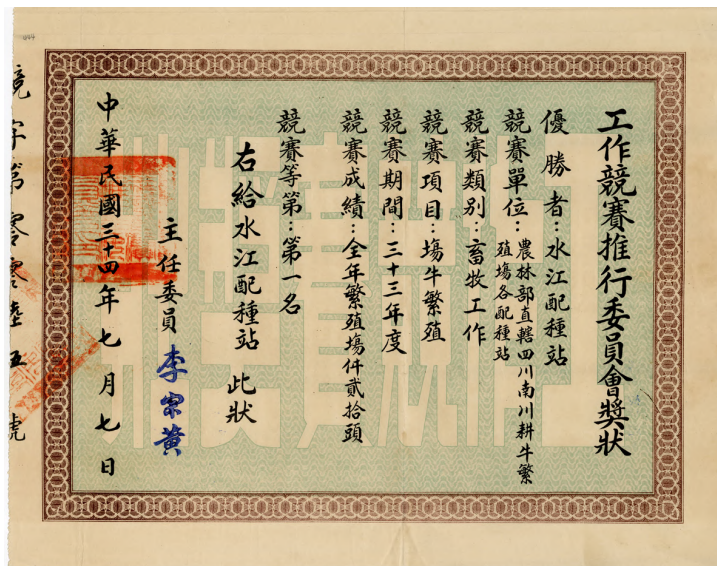 工作競賽推行委員會獎狀
優勝者：水江配種站
競賽單位：農林部直轄四川南川耕牛繁
殖場各配種站
競賽類別：畜牧工作
競賽項目：場牛繁殖
競賽期間：三十三年度
競賽成績：全年繁殖場仔貳拾頭
競賽等第：第一名
右給水江配種站 此狀
主任委員 李宗黃
中華民國三十四年七月七日
競字第零零陸五號